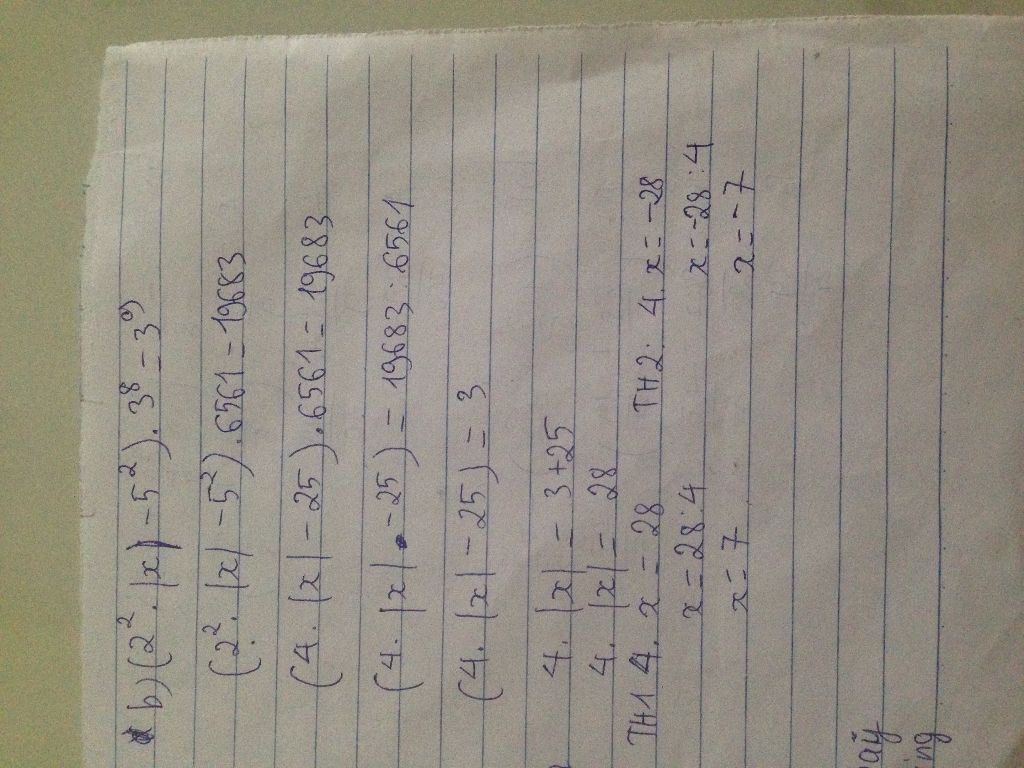 b) (2². |x| - 5²). 3⁸ = 3⁹)
(2². |x| - 5²). 6561 = 19683
(4. |x| - 25). 6561 = 19683
(4. |x| - 25) = 19683 : 6561
(4. |x| - 25) = 3
4. |x| = 3 + 25
4. |x| = 28
TH1 4. x = 28 TH2. 4. x = -28
x = 28 : 4 x = -28 : 4
x = 7 x = -7